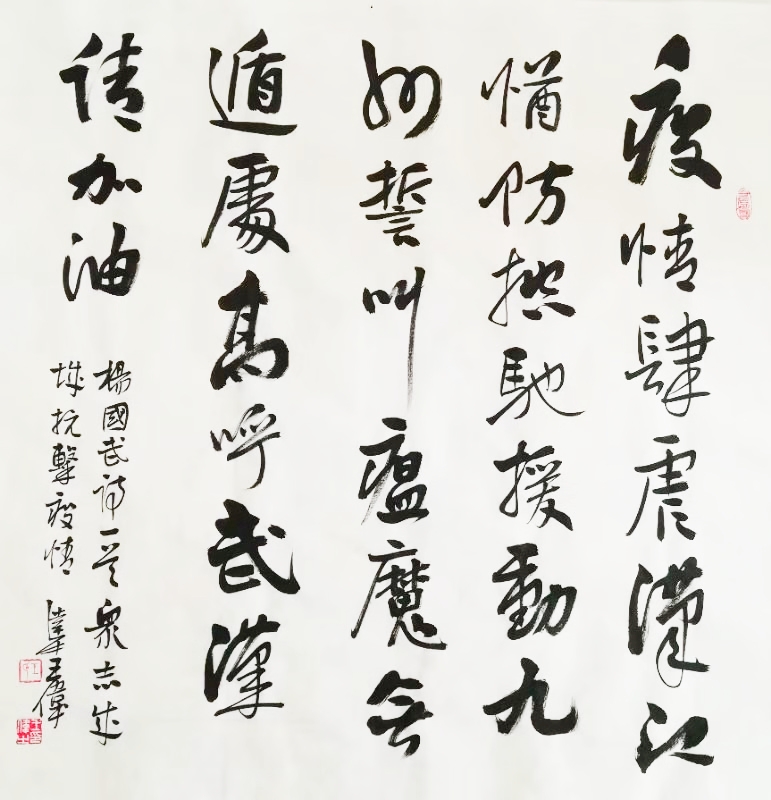 疫情肆震漢江
防控馳援動九
州誓叫瘟魔無
遁處高呼武漢
請加油
楊國武詩一首眾志成
城抗擊疫情 王偉